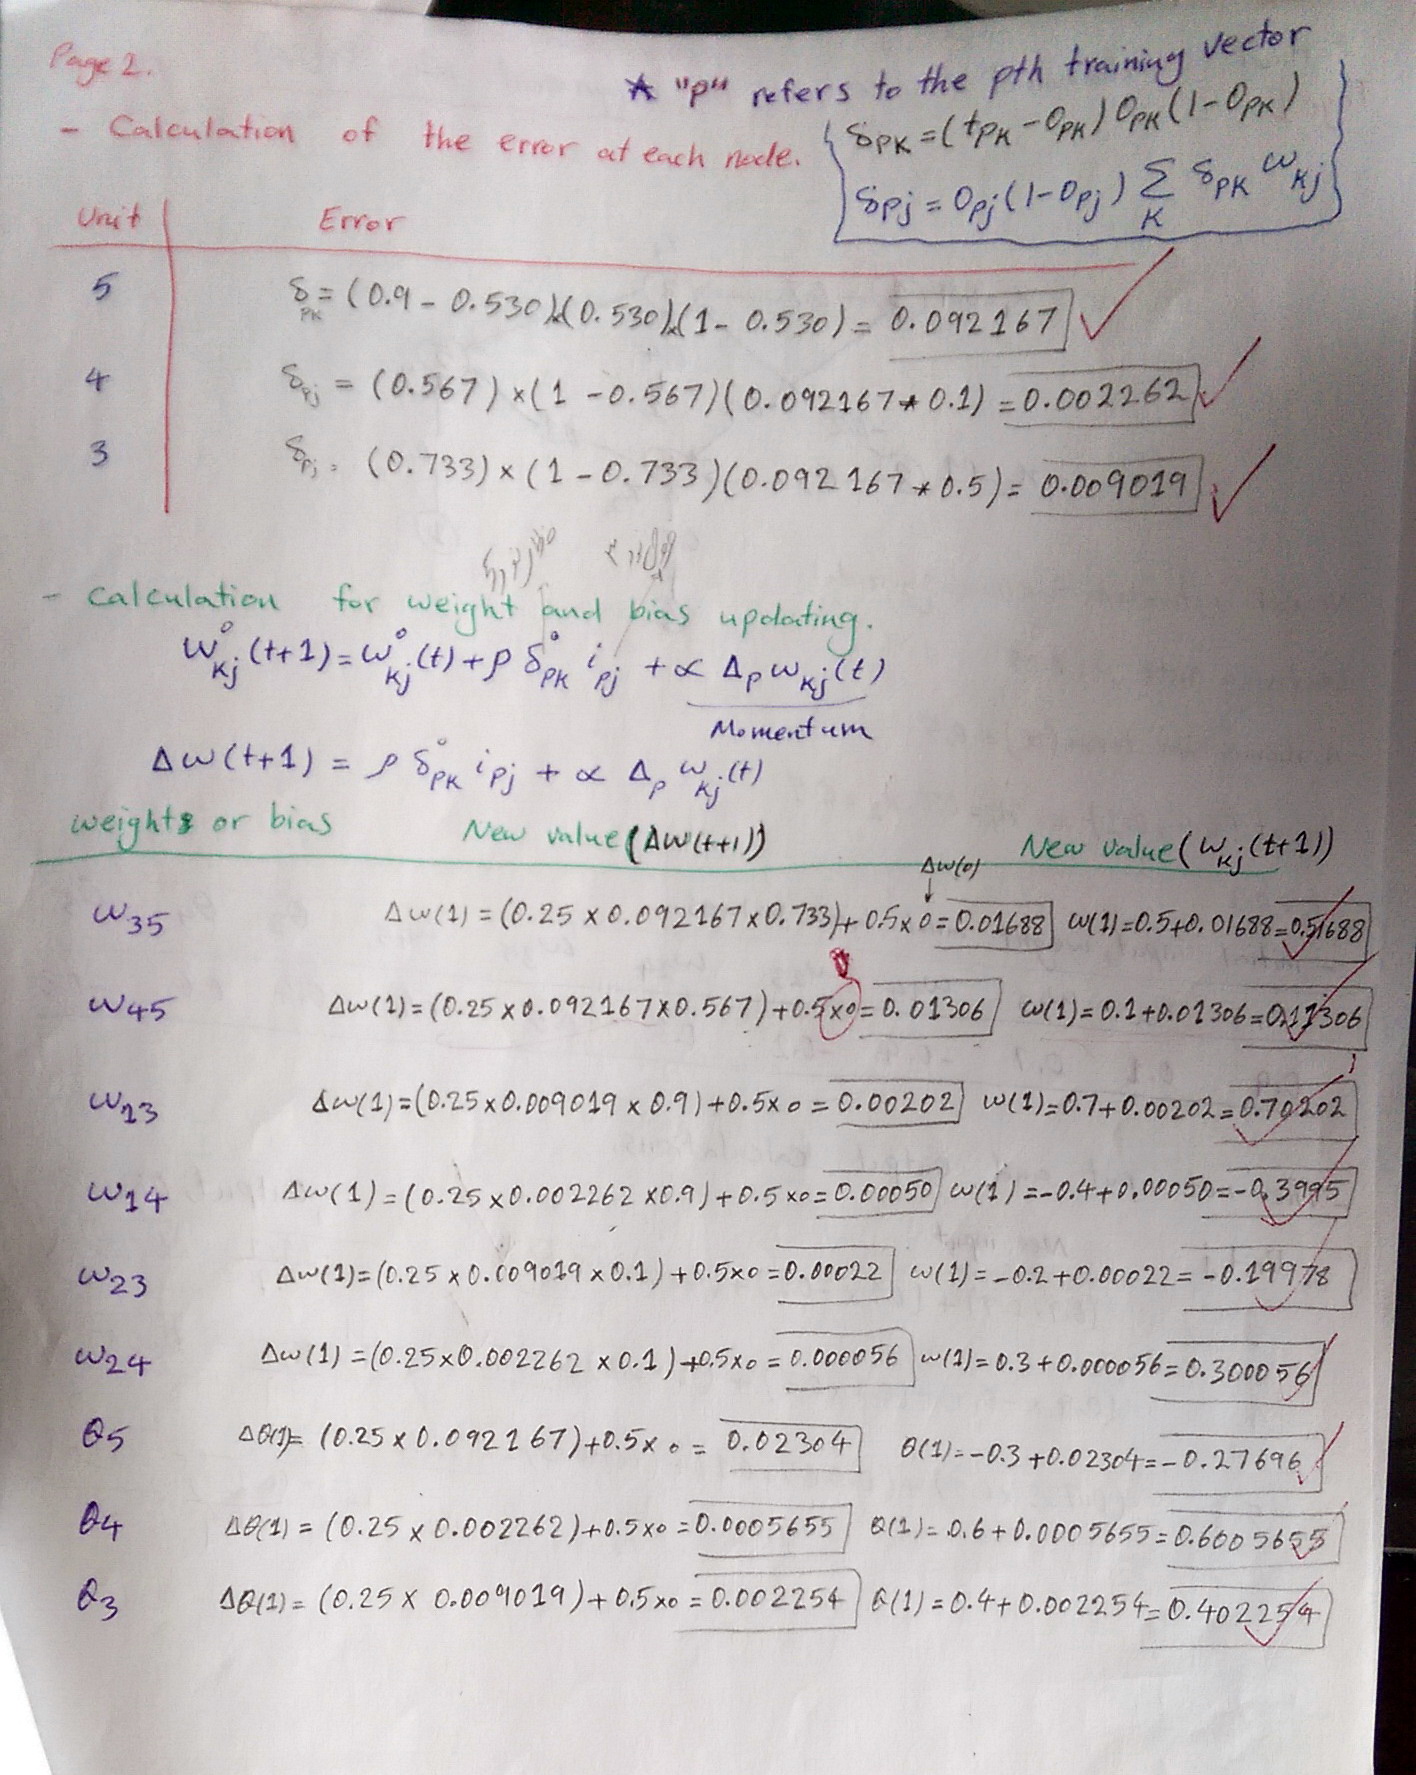 Page 2.
* "p" refers to the pth training vector
- Calculation of the error at each node.
δPK = (tPK - OPK) OPK (1 - OPK)
δPj = OPj (1 - OPj) Σ K δPK ωKj
Unit Error
5 δPK = (0.9 - 0.530)x(0.530)x(1 - 0.530) = 0.092167 ✓
4 δPj = (0.567) × (1 - 0.567)(0.092167 * 0.1) = 0.002262 ✓
3 δPj = (0.733) × (1 - 0.733)(0.092167 * 0.5) = 0.009019 ✓
- Calculation for weight and bias updating.
W°Kj (t+1) = ω°Kj (t) + ρ δ°PK iPj + α ΔP ωKj (t)
Momentum
Δω(t+1) = ρ δ°PK iPj + α ΔP ωKj (t)
weights or bias New value (Δω(t+1)) New value (ωKj (t+1))
Δω(0)
ω35 Δω(1) = (0.25 × 0.092167 × 0.733) + 0.5 × 0 = 0.01688 ω(1) = 0.5 + 0.01688 = 0.51688 ✓
ω45 Δω(1) = (0.25 × 0.092167 × 0.567) + 0.5 × 0 = 0.01306 ω(1) = 0.1 + 0.01306 = 0.11306 ✓
ω13 Δω(1) = (0.25 × 0.009019 × 0.9) + 0.5 × 0 = 0.00202 ω(1) = 0.7 + 0.00202 = 0.70202 ✓
ω14 Δω(1) = (0.25 × 0.002262 × 0.9) + 0.5 × 0 = 0.00050 ω(1) = -0.4 + 0.00050 = -0.3995 ✓
ω23 Δω(1) = (0.25 × 0.009019 × 0.1) + 0.5 × 0 = 0.00022 ω(1) = -0.2 + 0.00022 = -0.19978 ✓
ω24 Δω(1) = (0.25 × 0.002262 × 0.1) + 0.5 × 0 = 0.000056 ω(1) = 0.3 + 0.000056 = 0.300056 ✓
θ5 Δθ(1) = (0.25 × 0.092167) + 0.5 × 0 = 0.02304 θ(1) = -0.3 + 0.02304 = -0.27696 ✓
θ4 Δθ(1) = (0.25 × 0.002262) + 0.5 × 0 = 0.0005655 θ(1) = 0.6 + 0.0005655 = 0.6005655 ✓
θ3 Δθ(1) = (0.25 × 0.009019) + 0.5 × 0 = 0.002254 θ(1) = 0.4 + 0.002254 = 0.402254 ✓